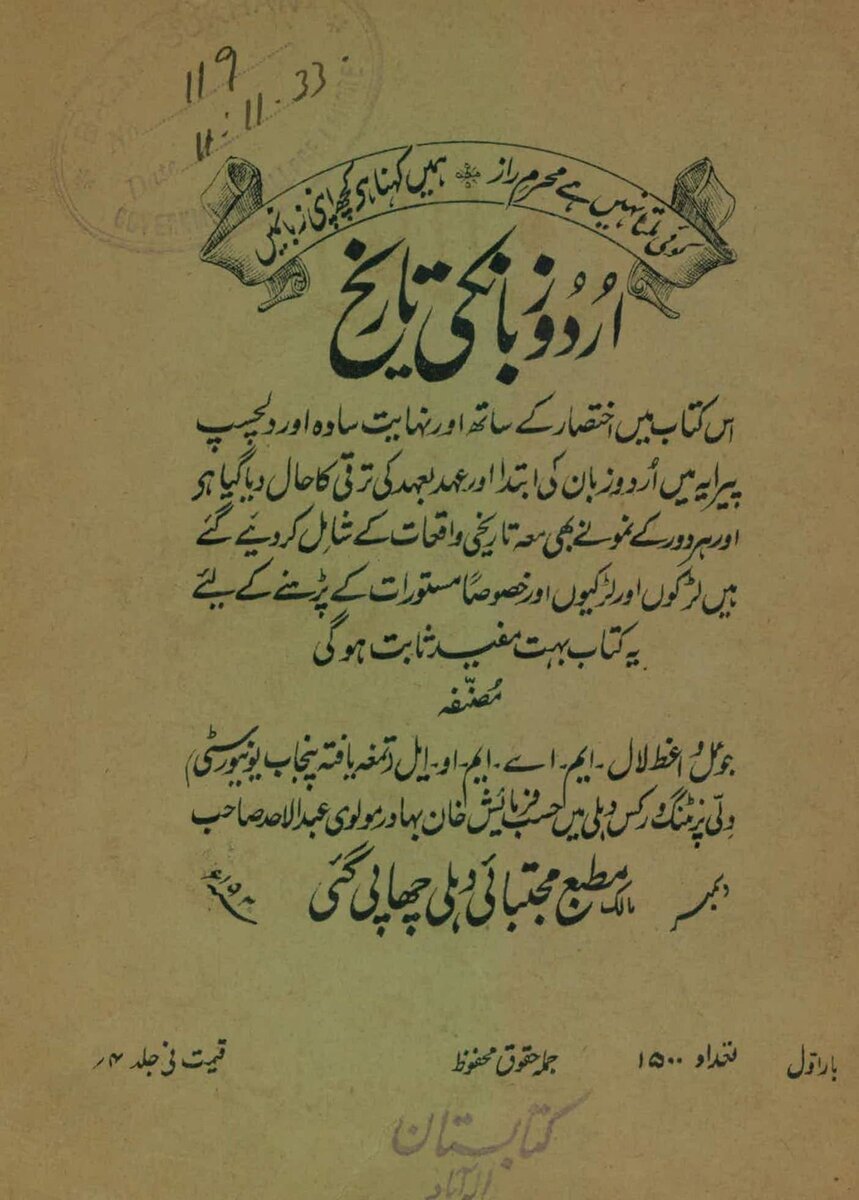 No. 119
Date 11-11-33.
کوئی ملتا نہیں ہے محرم راز ہمیں کہنا ہو کچھ اپنی زبانمیں
اُردُو زبانکی تاریخ
اس کتاب میں اختصار کے ساتھ اور نہایت سادہ اور دلچسپ
پیرایہ میں اُردو زبان کی ابتدا اور عہد بعہد کی ترقی کا حال دیا گیا ہو
اور ہر دور کے نمونے بھی معہ تاریخی واقعات کے شامل کر دیئے گئے
ہیں لڑکوں اور لڑکیوں اور خصوصاً مستورات کے پڑہنے کے لیئے
یہ کتاب بہت مفید ثابت ہوگی
مُصنّفہ
جوئل واعظ لال - ایم - اے - ایم - او - ایل (تمغہ یافتہ پنجاب یونیورسٹی)
دلّی پرنٹنگ ورکس دہلی میں حسب فرمائیش خان بہادر مولوی عبدالاحد صاحب
دسمبر مالک مطبع مجتبائی دہلی چھاپی گئی
بار اوّل تعداد ۱۵۰۰ جملہ حقوق محفوظ قیمت فی جلد ۴ ر
کتابستان
الہ آباد